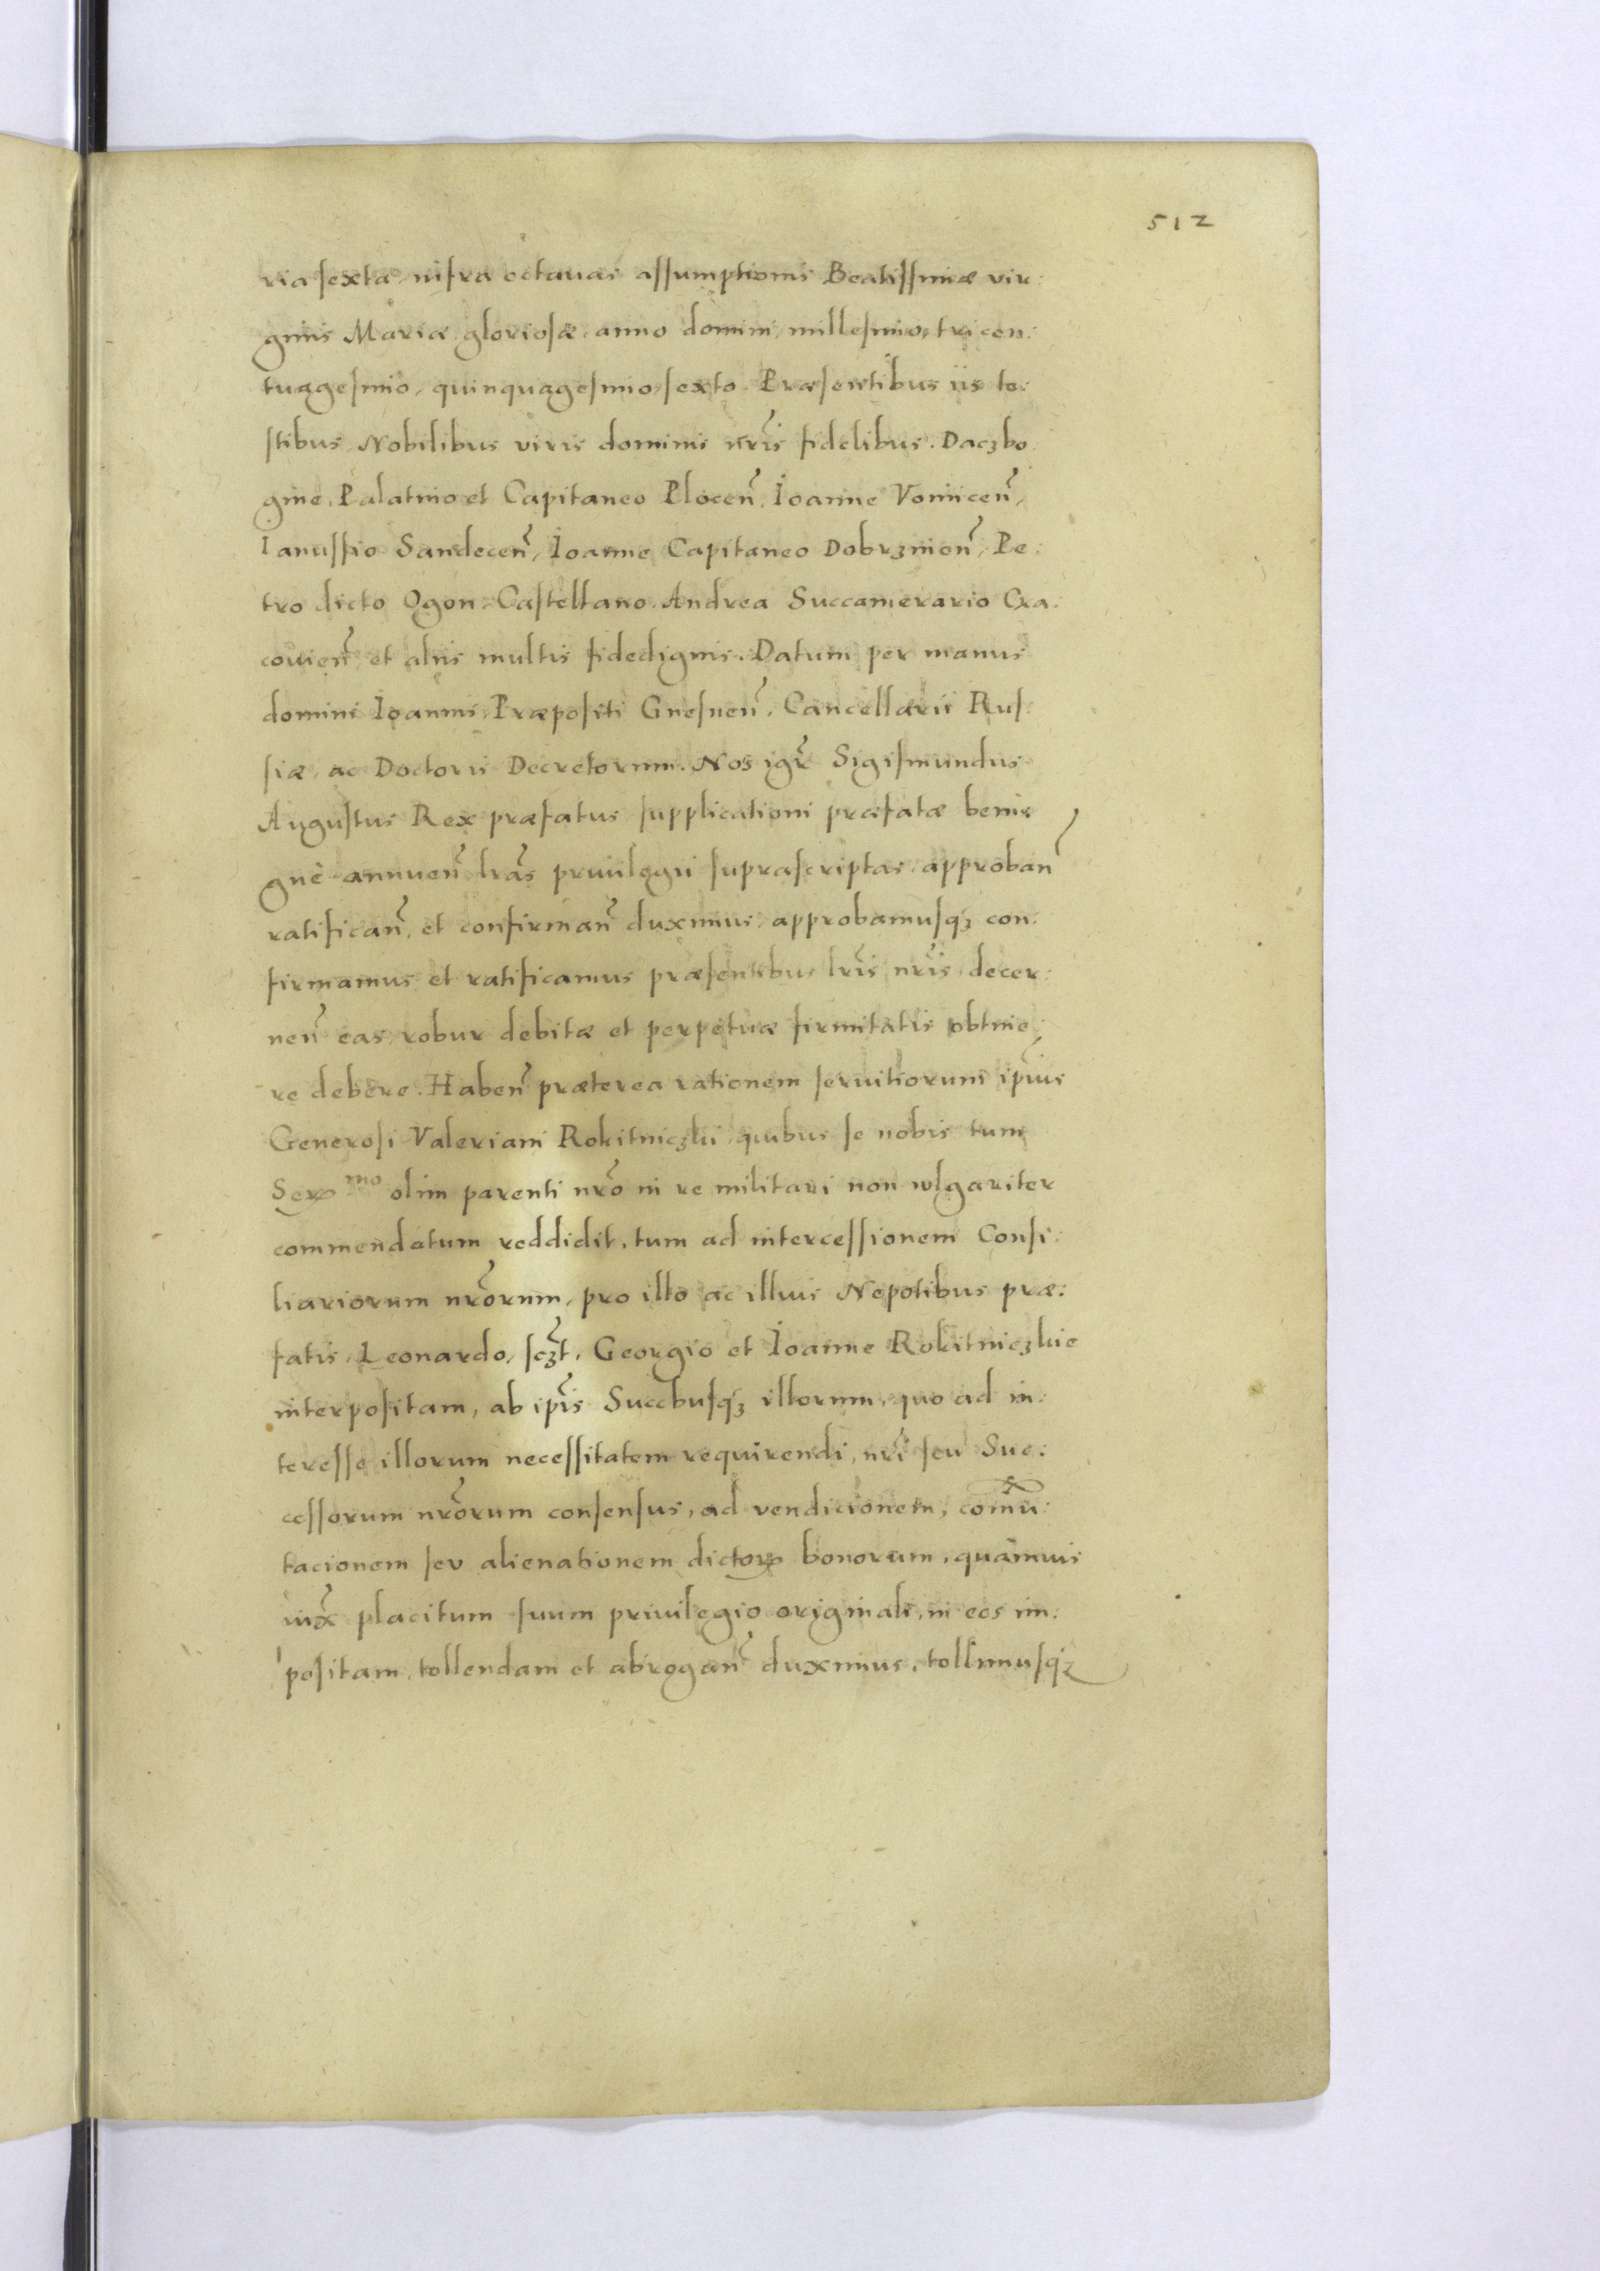 512
ria sexta, infra octauas assumptionis Beatissimæ vir:
ginis Mariæ gloriosæ, anno domini, millesimo, tricen:
tuagesimo, quinquagesimo, sexto. Præsentibus iis te:
stibus Nobilibus viris dominis nr̃is fidelibus. Daczbo
gine, Palatino et Capitaneo Plocen̄, Ioanne Voinicen̄,
Ianussio Sandecen̄, Ioanne Capitaneo Dobrzinien̄, Pe:
tro dicto Ogon, Castellano, Andrea Succamerario Cra:
couien̄ et aliis multis fidedignis. Datum per manus
domini Ioannis, Præpositi Gnesnen̄, Cancellarii Rus:
siæ, ac Doctoris Decretorum. Nos igr̃ Sigismundus
Augustus Rex præfatus supplicationi præfatæ benig
gnè annuen̄ lr̃as priuilegii suprascriptas, approban̄
ratifican̄, et confirman̄ duximus, approbamusqꝫ con:
firmamus et ratificamus præsentibus lr̃is nr̃is, decer:
nen̄ eas robur debitæ et perpetuæ firmitatis obtine:
re debere. Haben̄ præterea rationem seruitiorum ip̃ius
Generosi Valeriani Rokitniczki, quibus se nobis tum
Serᵐᵒ olim parenti nr̃o in re militari non wlgariter
commendatum reddidit, tum ad intercessionem Consi:
liariorum nr̃orum, pro illo ac illius Nepotibus præ:
fatis, Leonardo, sczt̃, Georgio et Ioanne Rokitniczkie
interpositam, ab ip̃is Succbusqꝫ illorum, quo ad in:
teresse illorum necessitatem requirendi, nr̃i seu Suc:
cessorum nr̃orum consensus, ad vendicionem, com̃u:
tacionem seu alienationem dictorꝝ bonorum, quamuis
iux̃ placitum suum priuilegio originali, in eos im:
positam, tollendam et abrogan̄ duximus, tollimusqꝫ